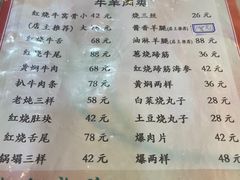 牛羊肉类
红烧牛窝骨小 42 元
(店主推荐)大 元
红烧牛舌 68 元
红烧牛尾 88 元
黄焖牛肉 68 元
扒牛肉条 78 元
老烧三样 58 元
红烧肚块 58 元
红烧舌尾 78 元
锅塌三样 48 元
烧三丝 26 元
酱香羊腿(店主推荐)
油淋羊腿(店主推荐) 88 元
葱烧蹄筋 36 元
红烧蹄筋海参 42 元
黄焖两样 48 元
白菜烧丸子 28 元
土豆烧丸子 28 元
爆肉片 42 元
爆两样 48 元